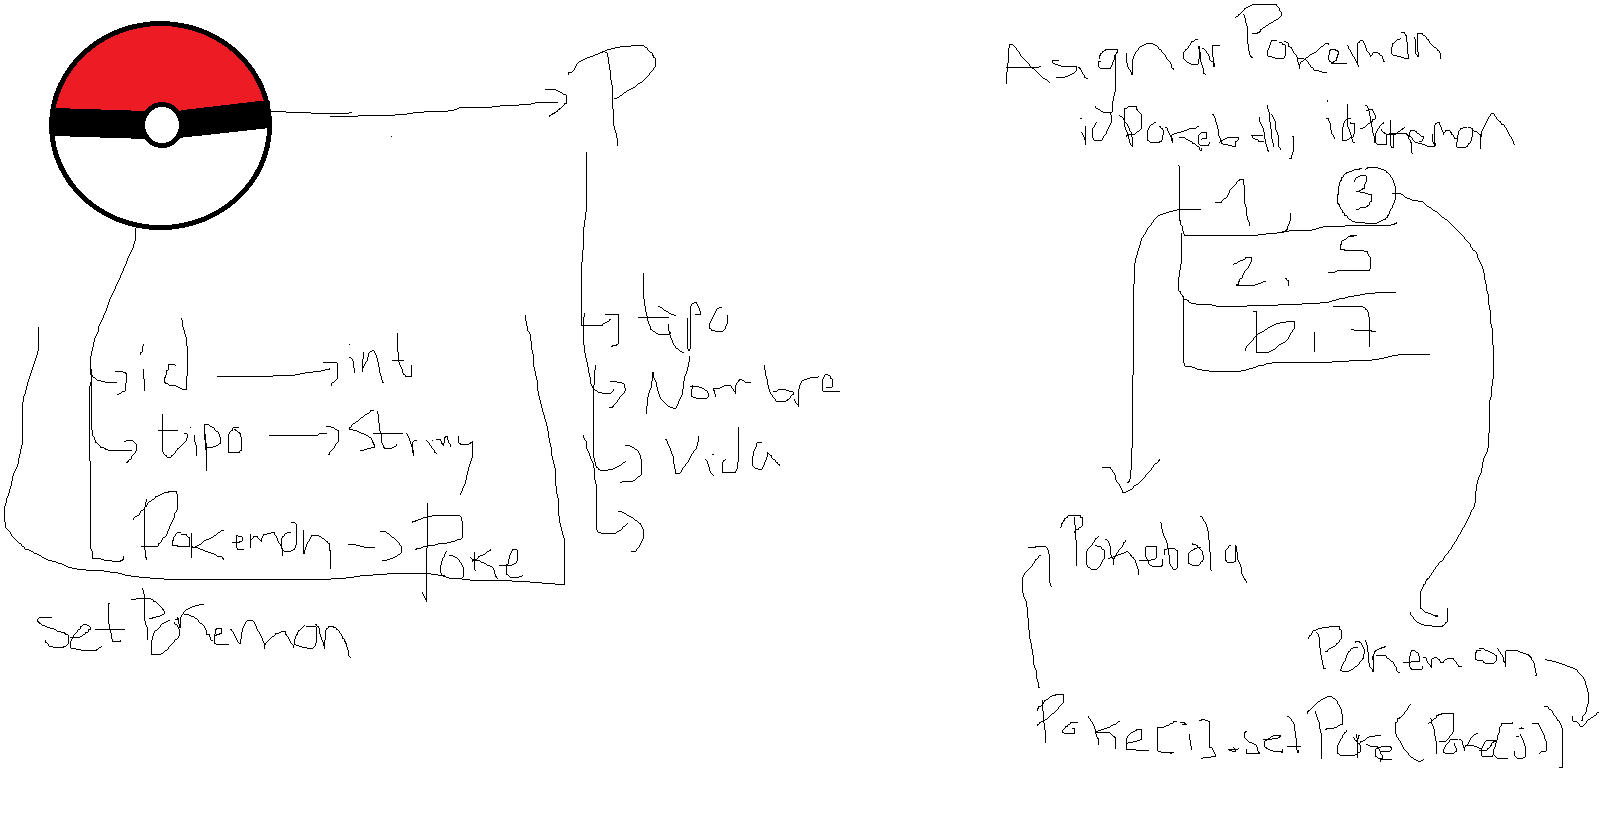 P
id → int
tipo → String
Pokemon → Poke
setPokemon
tipo
Nombre
Vida
Asignar Pokemon
idPokeball, idPokemon
1, 3
2, 5
6, 7
Pokebola
Pokemon
Poke[i].setPoke(Poke[j])